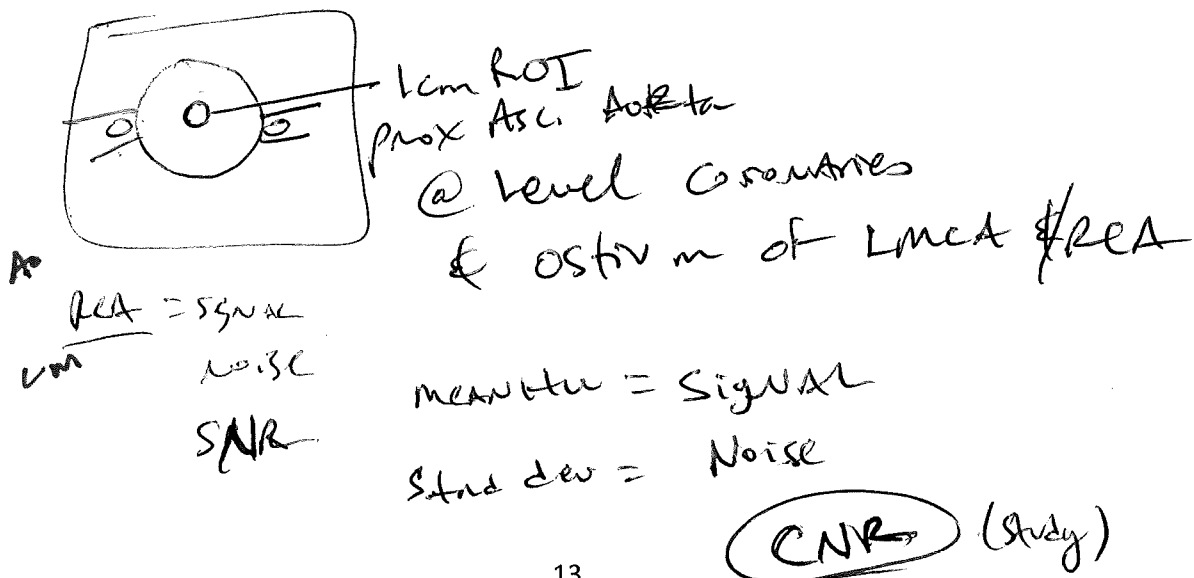 1cm ROI
prox Asc. Aorta
@ Level Coronaries
& ostium of LMCA &/RCA
Ao
RCA = SIGNAL
LM
NOISE
SNR
MEAN HU = SIGNAL
Stnd dev = Noise
CNR (study)
13